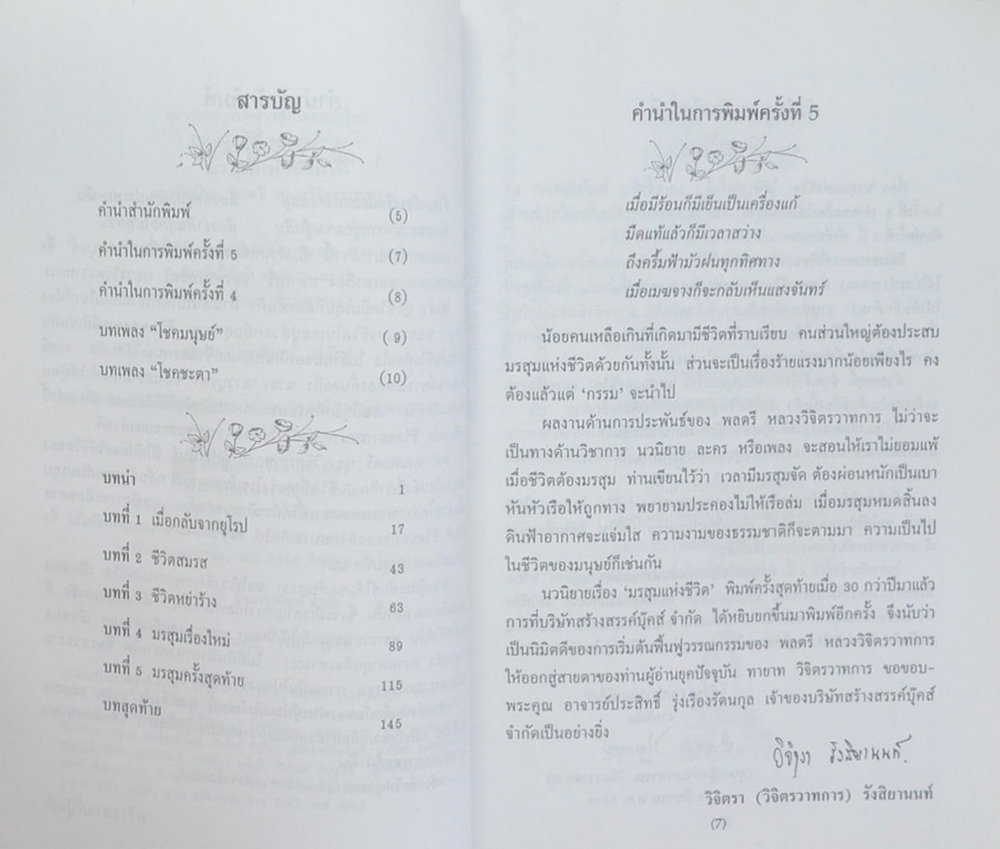 สารบัญ
คำนำสำนักพิมพ์ (5)
คำนำในการพิมพ์ครั้งที่ 5 (7)
คำนำในการพิมพ์ครั้งที่ 4 (8)
บทเพลง “โชคมนุษย์” ( 9)
บทเพลง “โชคชะตา” (10)
บทนำ 1
บทที่ 1 เมื่อกลับจากยุโรป 17
บทที่ 2 ชีวิตสมรส 43
บทที่ 3 ชีวิตหย่าร้าง 63
บทที่ 4 มรสุมเรื่องใหม่ 89
บทที่ 5 มรสุมครั้งสุดท้าย 115
บทสุดท้าย 145
คำนำในการพิมพ์ครั้งที่ 5
เมื่อมีร้อนก็มีเย็นเป็นเครื่องแก้
มืดแท้แล้วก็มีเวลาสว่าง
ถึงครึ้มฟ้ามัวฝนทุกทิศทาง
เมื่อเมฆจางก็จะกลับเห็นแสงจันทร์
น้อยคนเหลือเกินที่เกิดมามีชีวิตที่ราบเรียบ คนส่วนใหญ่ต้องประสบ
มรสุมแห่งชีวิตด้วยกันทั้งนั้น ส่วนจะเป็นเรื่องร้ายแรงมากน้อยเพียงไร คง
ต้องแล้วแต่ ‘กรรม’ จะนำไป
ผลงานด้านการประพันธ์ของ พลตรี หลวงวิจิตรวาทการ ไม่ว่าจะ
เป็นทางด้านวิชาการ นวนิยาย ละคร หรือเพลง จะสอนให้เราไม่ยอมแพ้
เมื่อชีวิตต้องมรสุม ท่านเขียนไว้ว่า เวลามีมรสุมจัด ต้องผ่อนหนักเป็นเบา
หันหัวเรือให้ถูกทาง พยายามประคองไม่ให้เรือล่ม เมื่อมรสุมหมดสิ้นลง
ดินฟ้าอากาศจะแจ่มใส ความงามของธรรมชาติก็จะตามมา ความเป็นไป
ในชีวิตของมนุษย์ก็เช่นกัน
นวนิยายเรื่อง ‘มรสุมแห่งชีวิต’ พิมพ์ครั้งสุดท้ายเมื่อ 30 กว่าปีมาแล้ว
การที่บริษัทสร้างสรรค์บุ๊คส์ จำกัด ได้หยิบยกขึ้นมาพิมพ์อีกครั้ง จึงนับว่า
เป็นนิมิตดีของการเริ่มต้นฟื้นฟูวรรณกรรมของ พลตรี หลวงวิจิตรวาทการ
ให้ออกสู่สายตาของท่านผู้อ่านยุคปัจจุบัน ทายาท วิจิตรวาทการ ขอขอบ-
พระคุณ อาจารย์ประสิทธิ์ รุ่งเรืองรัตนกุล เจ้าของบริษัทสร้างสรรค์บุ๊คส์
จำกัดเป็นอย่างยิ่ง
วิจิตรา รังสิยานนท์
วิจิตรา (วิจิตรวาทการ) รังสิยานนท์
(7)